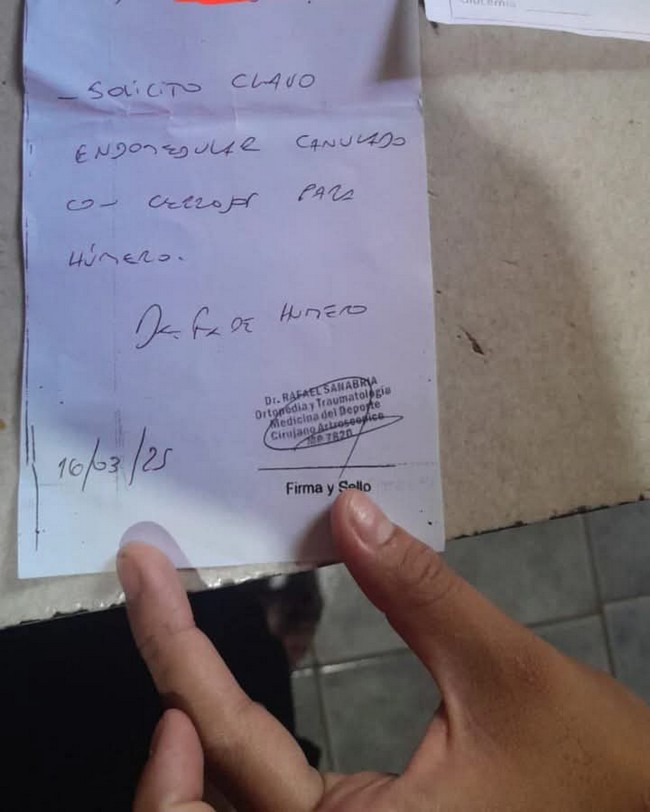 - SOLICITO CLAVO
ENDOMEDULAR CANULADO
CON CERROJOS PARA
HÚMERO.
Dx. Fx DE HUMERO
Dr. RAFAEL SANABRIA
Ortopedia y Traumatología
Medicina del Deporte
Cirujano Artroscópico
MP 7820
16/03/25
Firma y Sello
Glucemia